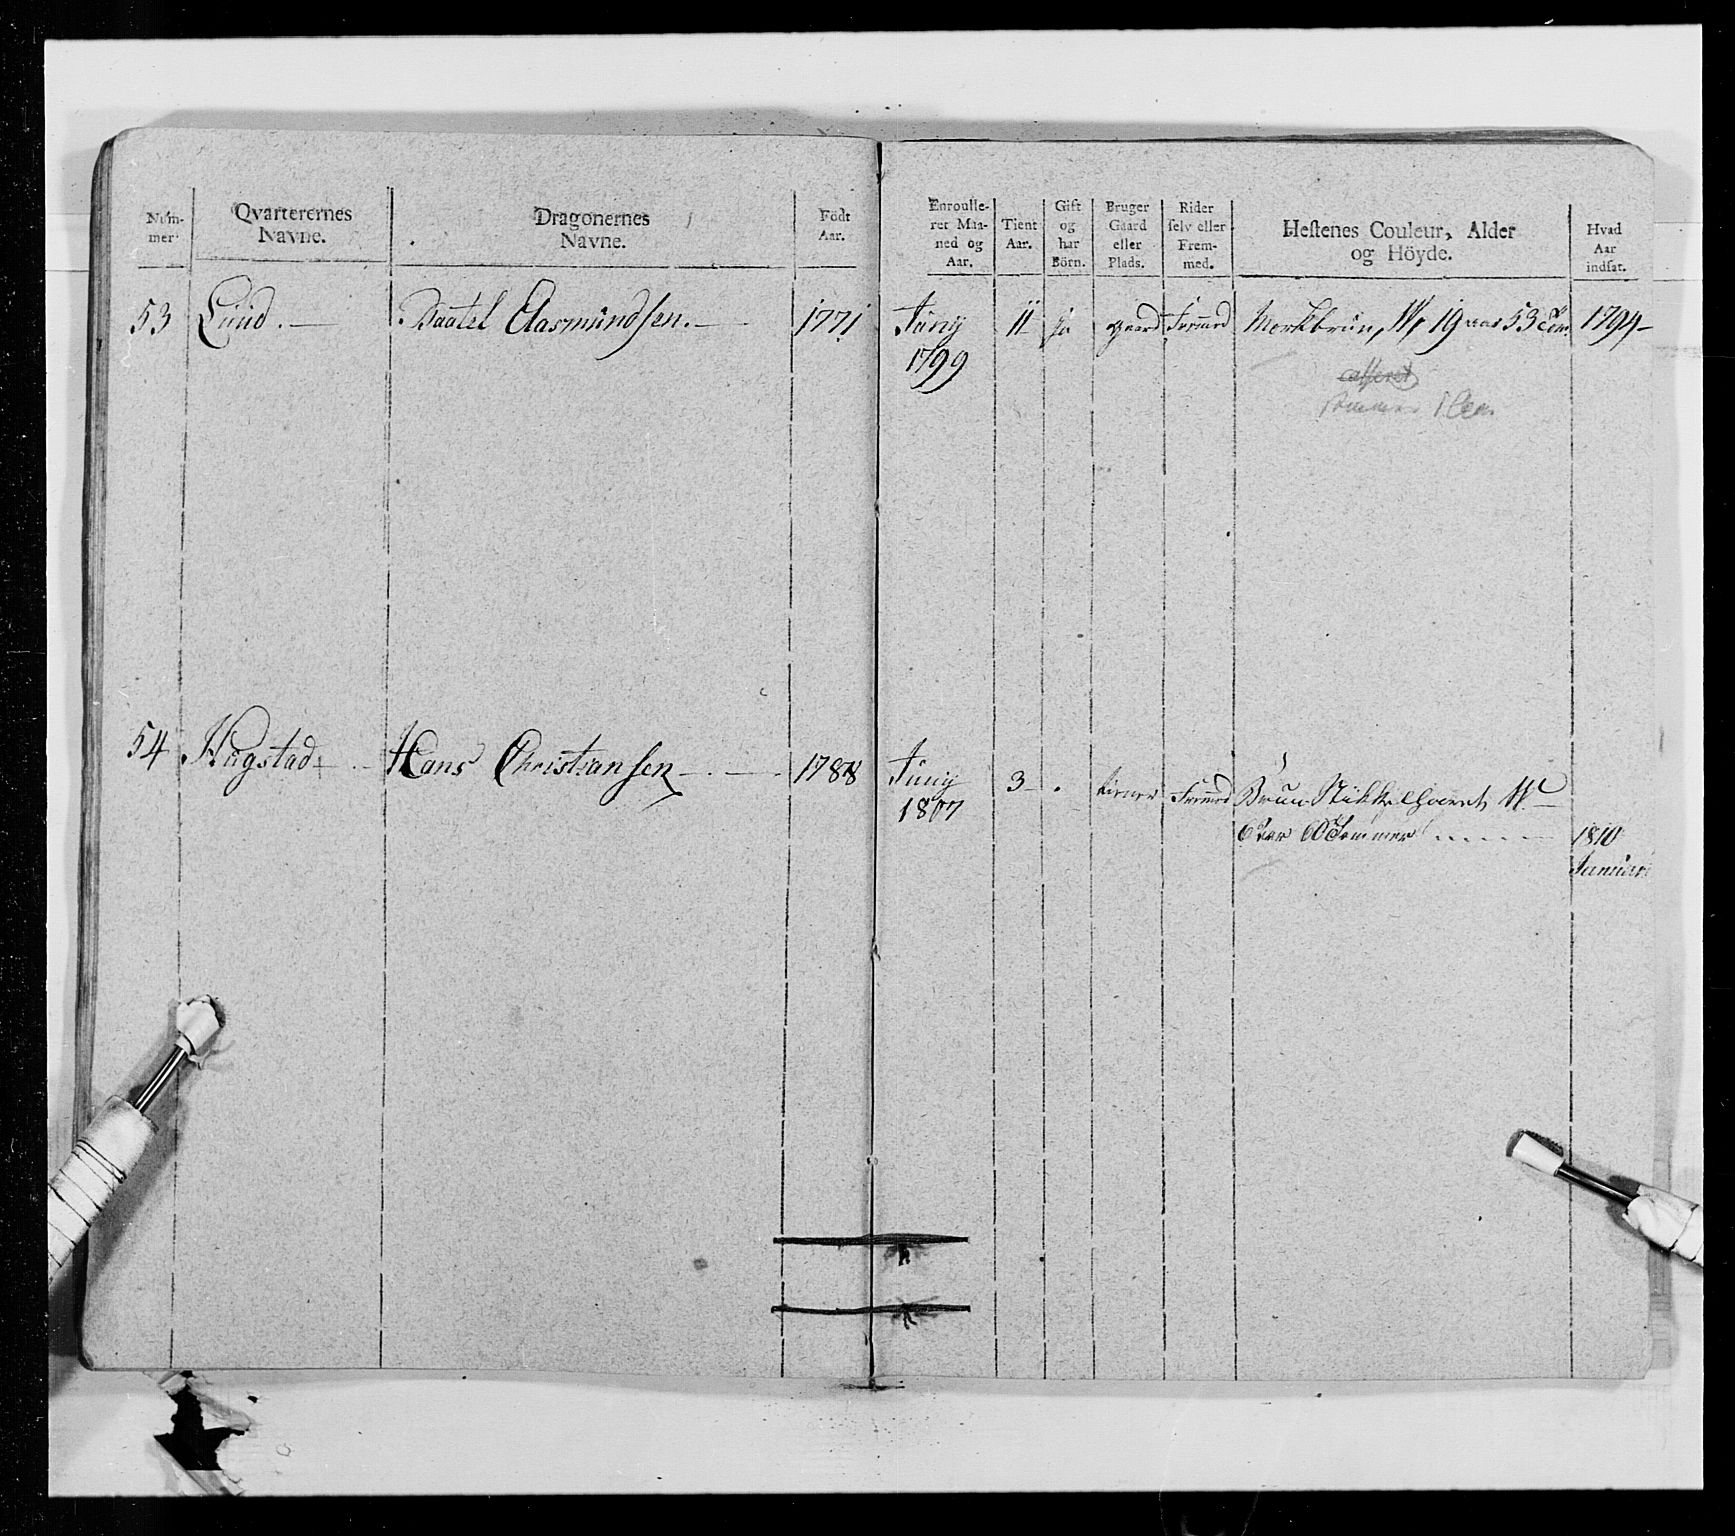 Num-
mer.
Qvarterernes
Navne.
Dragonernes
Navne.
Födt
Aar.
Enroulle-
ret Maa-
ned og
Aar.
Tient
Aar.
Gift
og
har
Börn.
Bruger
Gaard
eller
Plads.
Rider
selv eller
Frem-
med.
Hestenes Couleur, Alder
og Höyde.
Hvad
Aar
indsat.
53 Lund. — Aasmundsen. — 1771 Juny 11 ja gaard Fremed Morkbrun, W, 19 aar 53 Tom 1794 —
1799
casseret
54 Hugstad — Hans Christiansen — 1788 Juny 3 — tiener Fremed Brun W —
1807 6 aar 60 Tommer 1810
Januari